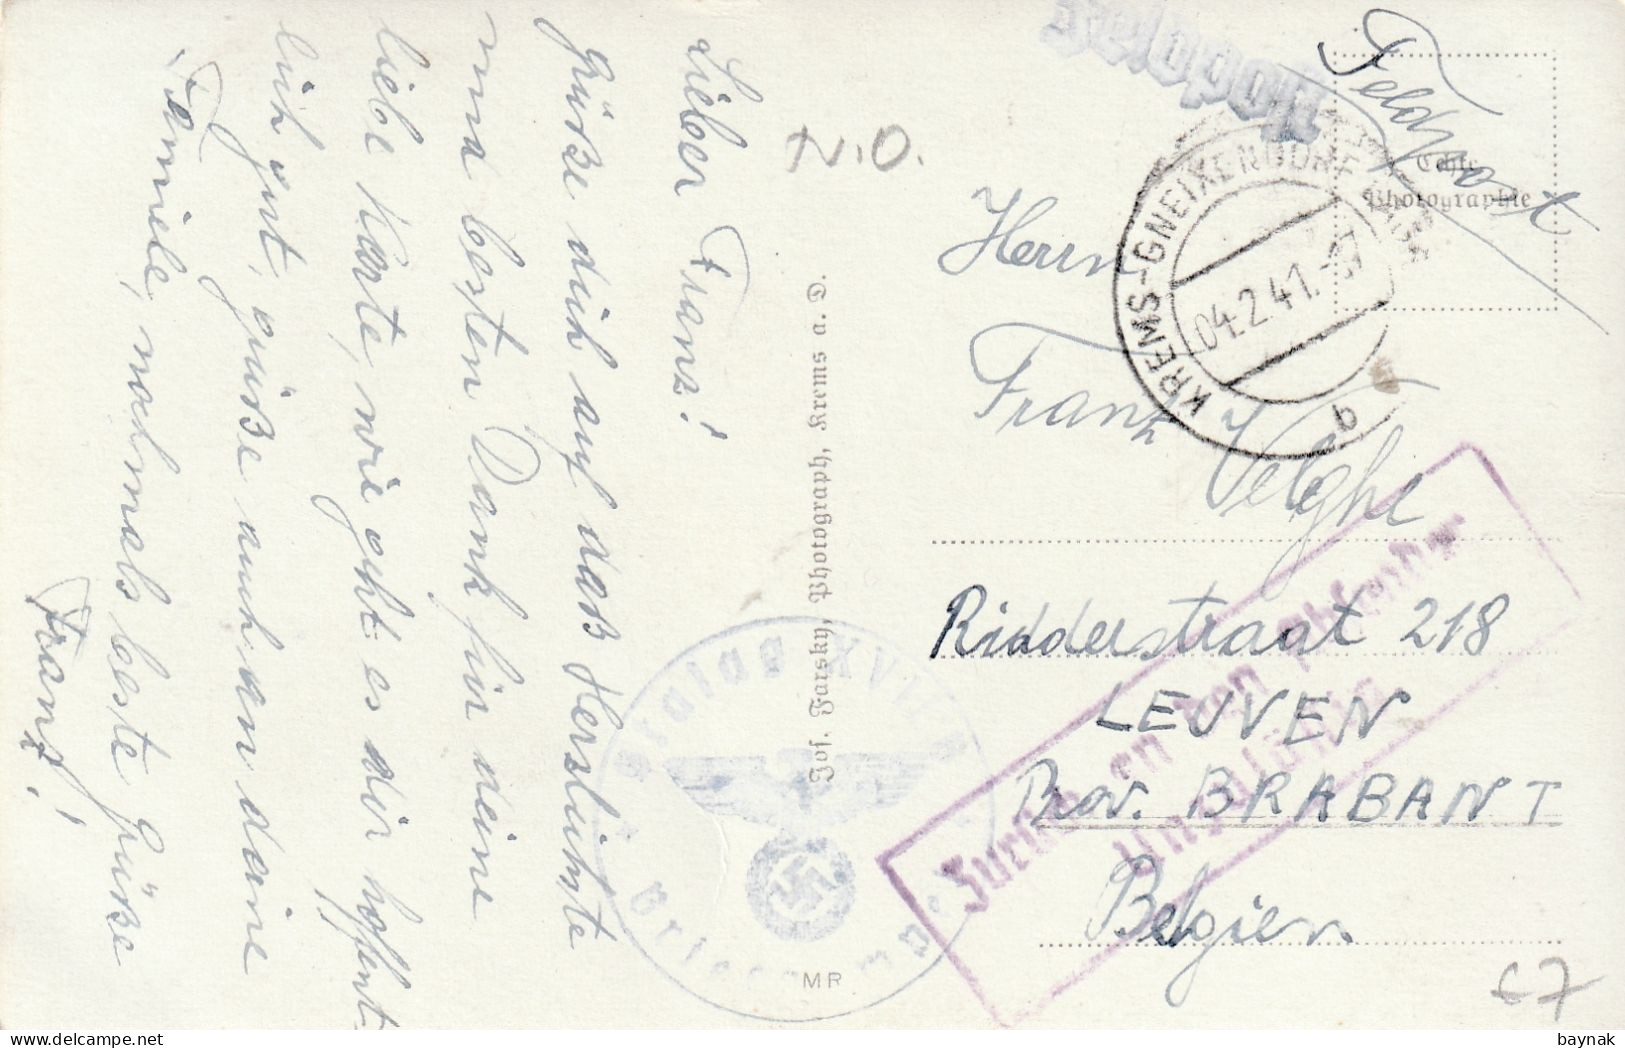 Lieber Franz!
Grüße dich auf das Herzlichste
und besten Dank für deine
liebe Karte, wie geht es dir hoffent-
lich gut, grüße auch an deine
Familie, nochmals beste Grüße
Franz!
N.O.
Jos. Farsky, Photograph, Krems a. D.
MR
Feldpost
Feldpost
Echte
Photographie
KREMS-GNEIXENDORF
04.2.41.
b
Herrn
Franz Velghe
Ridderstraat 218
LEUVEN
Prov. BRABANT
Belgien.
Zurück an den Absender
Unzulässig
Stalag XVII B
Briefstempel
baynak